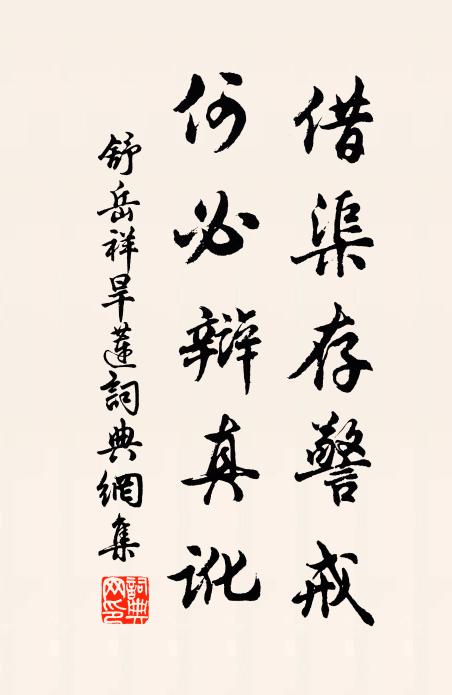 借渠存警戒
何必辯真訛
舒岳祥旱蓮詞典網集
詞典網印